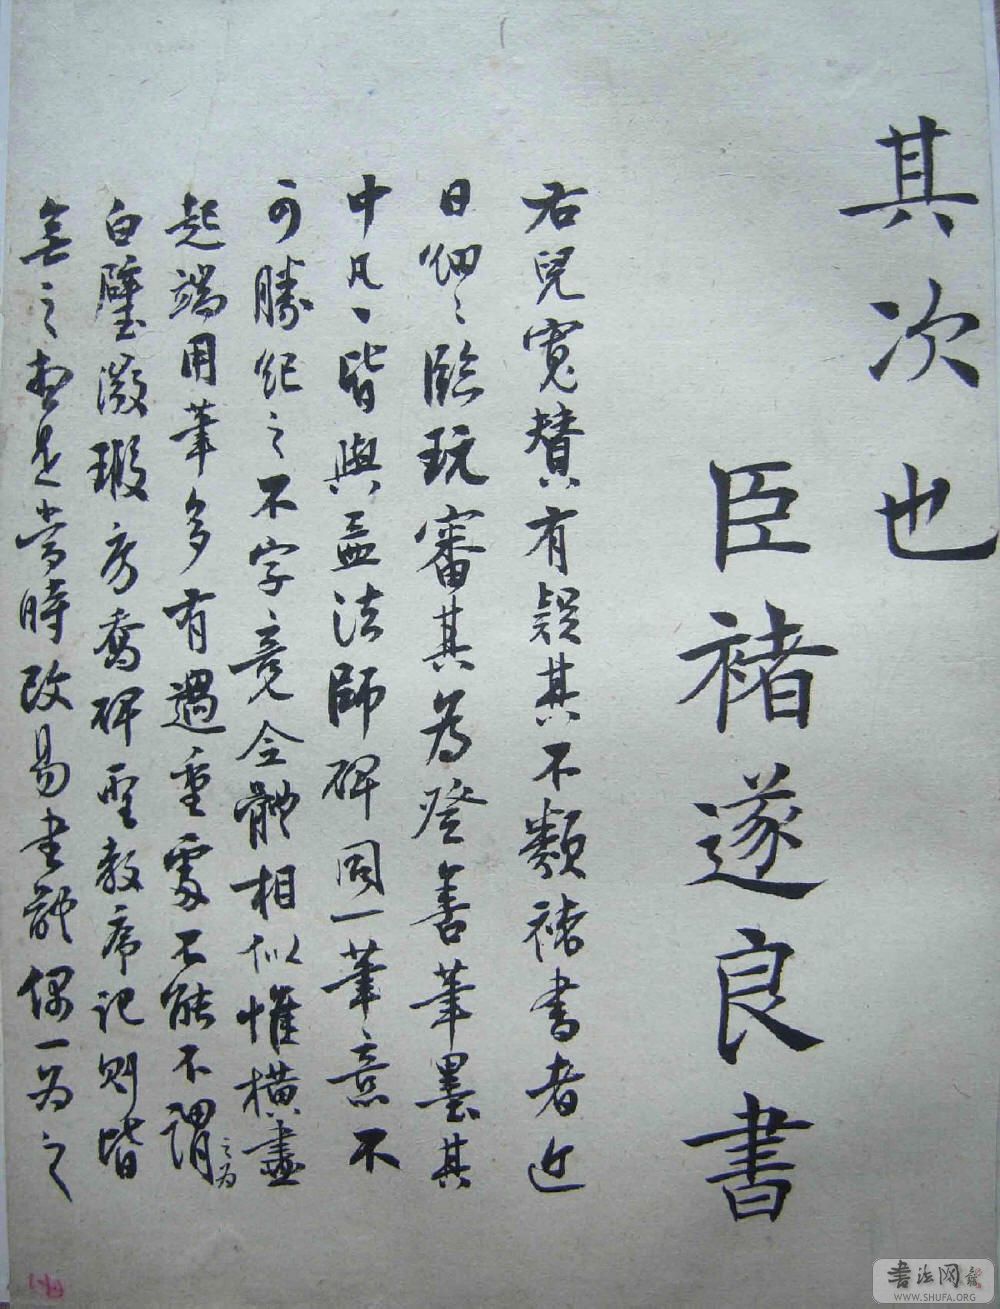 其次也
臣褚遂良書
右兒寬贊有疑其不類褚書者近
日細〻臨玩審其為登善筆墨其
中凡〻皆與孟法師碑同一筆意不
可勝紀之不字竟全體相似惟橫畫
起端用筆多有過重處不能不謂之為
白璧微瑕房喬碑聖教序記則皆
無之想是當時改易書體偶一為之
書法网
WWW.SHUFA.ORG